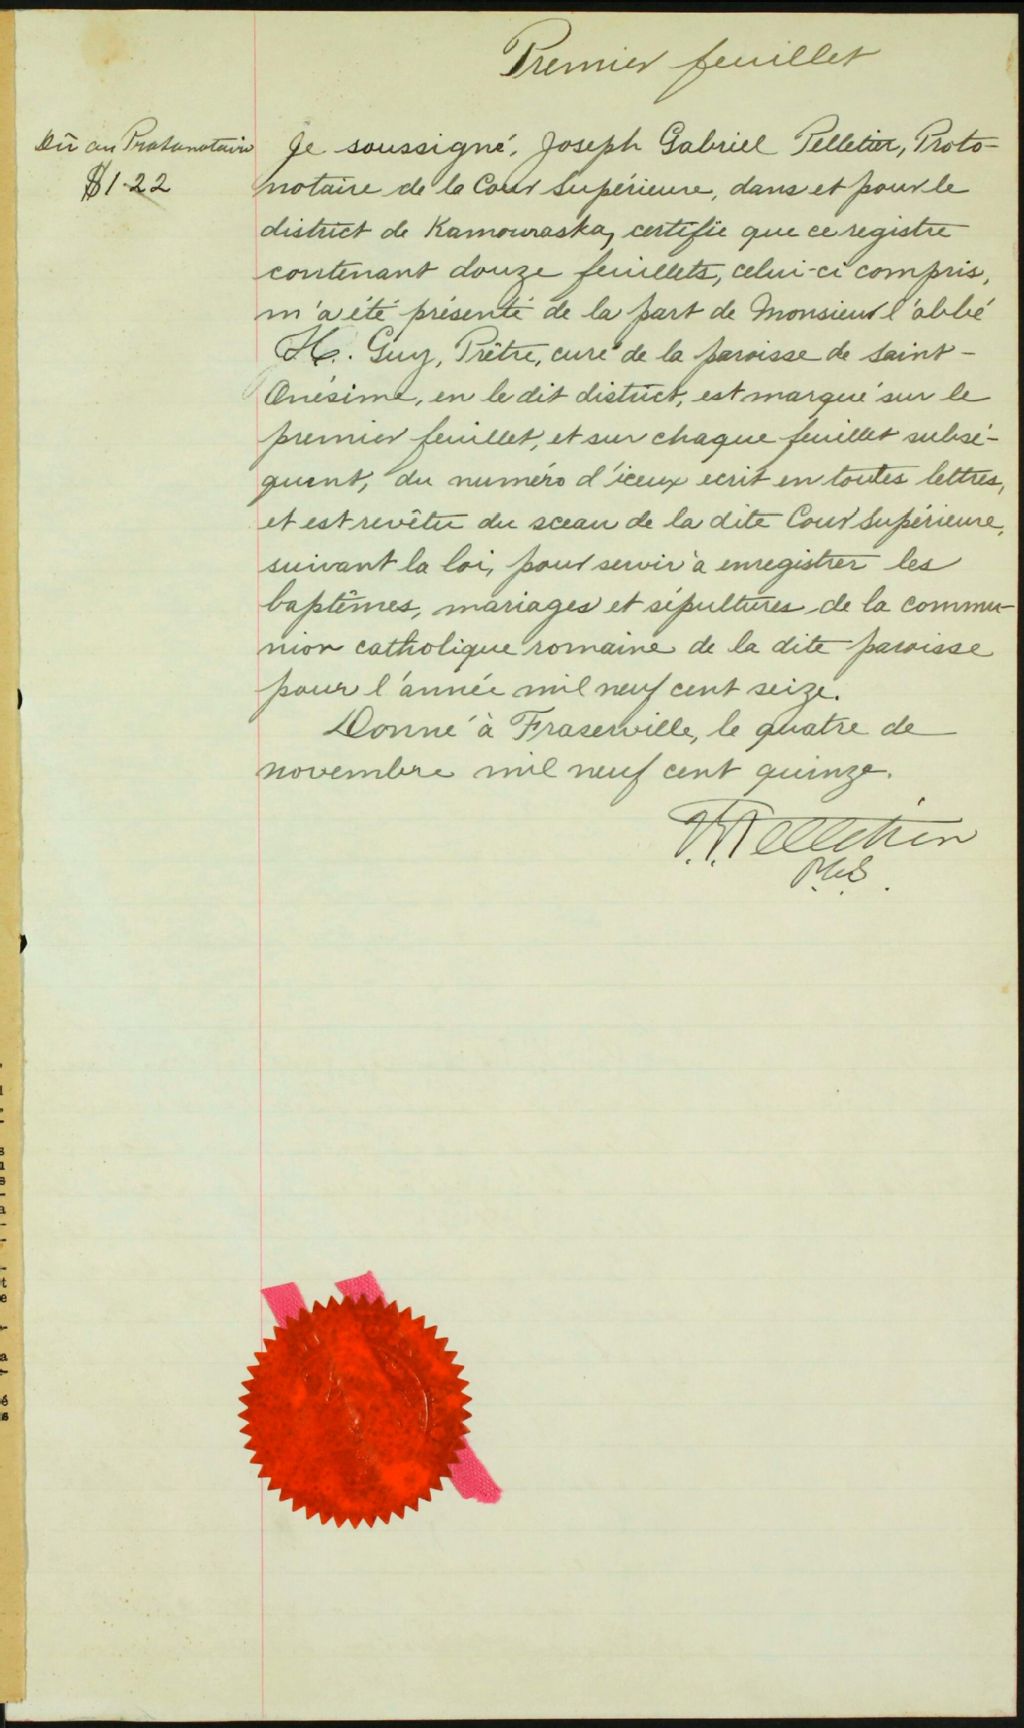 Premier feuillet
Dû au Protonotaire
$1.22
Je soussigné, Joseph Gabriel Pelletier, Proto-
notaire de la Cour Supérieure, dans et pour le
district de Kamouraska, certifie que ce registre
contenant douze feuillets, celui-ci compris,
m'a été présenté de la part de Monsieur l'abbé
H. Guy, Prêtre, curé de la paroisse de Saint-
Onésime, en le dit district, est marqué sur le
premier feuillet, et sur chaque feuillet subsé-
quent, du numéro d'iceux ecrit en toutes lettres,
et est revêtu du sceau de la dite Cour Supérieure,
suivant la loi, pour servir à enregistrer les
baptêmes, mariages et sépultures de la commu-
nion catholique romaine de la dite paroisse
pour l'année mil neuf cent seize.
Donné à Fraserville, le quatre de
novembre mil neuf cent quinze.
Pelletier